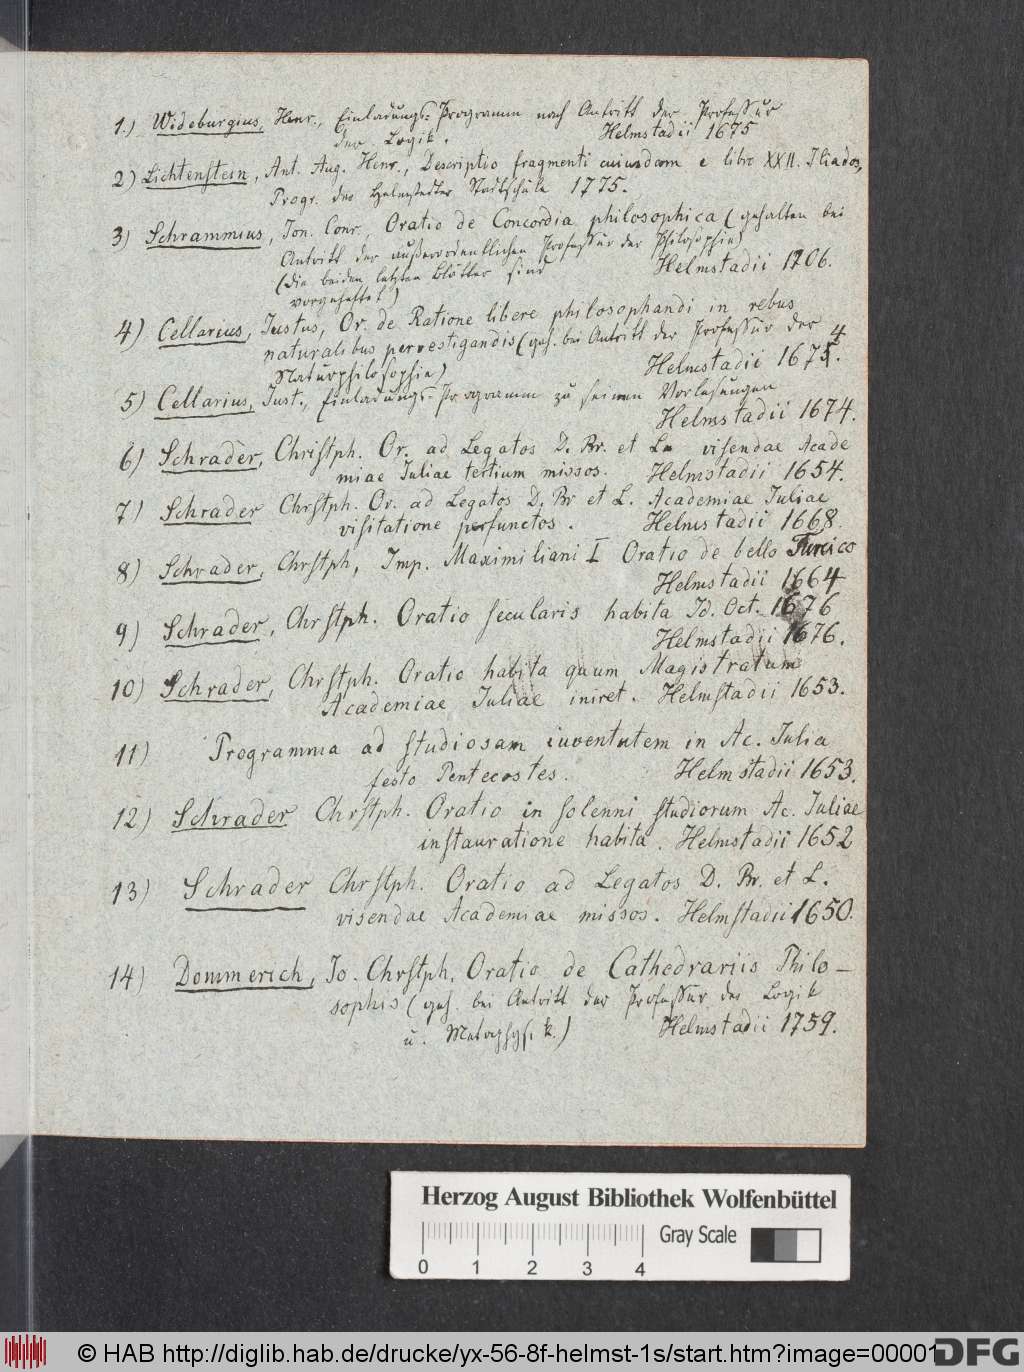 1.) Wideburgius, Henr., Einladungs-Programm nach Antritt der Professur
der Logik. Helmstadii 1675
2) Lichtenstein, Ant. Aug. Henr., Descriptio fragmenti cuiusdam e libro XXII. Iliados,
Progr. der Helmstedter Stadtschule 1775.
3) Schrammius, Ion. Conr., Oratio de Concordia philosophica (gehalten bei
Antritt der außerordentlichen Professur der Philosophie)
(die beiden letzten Blätter sind Helmstadii 1706.
vorgeheftet)
4) Cellarius, Iustus, Or. de Ratione libere philosophandi in rebus
naturalibus pervestigandis (geh. bei Antritt der Professur der
Naturphilosophie) Helmstadii 1675. 4
5) Cellarius, Iust., Einladungs-Programm zu seinen Vorlesungen
Helmstadii 1674.
6) Schrader, Christph. Or. ad Legatos D. Br. et L. visendae Acade
miae Iuliae tertium missos. Helmstadii 1654.
7) Schrader Chrstph. Or. ad Legatos D. Br et L. Academiae Iuliae
visitatione perfunctos. Helmstadii 1668.
8) Schrader, Chrstph, Imp. Maximiliani I Oratio de bello Turcico
Helmstadii 1664
9) Schrader, Chrstph. Oratio secularis habita Id. Oct. 1676
Helmstadii 1676.
10) Schrader, Chrstph. Oratio habita quum Magistratum
Academiae Iuliae iniret. Helmstadii 1653.
11) Programma ad studiosam iuventutem in Ac. Iulia
festo Pentecostes. Helmstadii 1653.
12) Schrader Chrstph. Oratio in solenni studiorum Ac. Iuliae
instauratione habita. Helmstadii 1652
13) Schrader Chrstph. Oratio ad Legatos D. Br. et L.
visendae Academiae missos. Helmstadii 1650.
14) Dommerich, Io. Chrstph. Oratio de Cathedrariis Philo-
sophis (geh. bei Antritt der Professur der Logik
u. Metaphysik.) Helmstadii 1759.
Herzog August Bibliothek Wolfenbüttel
Gray Scale
0 1 2 3 4
© HAB http://diglib.hab.de/drucke/yx-56-8f-helmst-1s/start.htm?image=00001
DFG